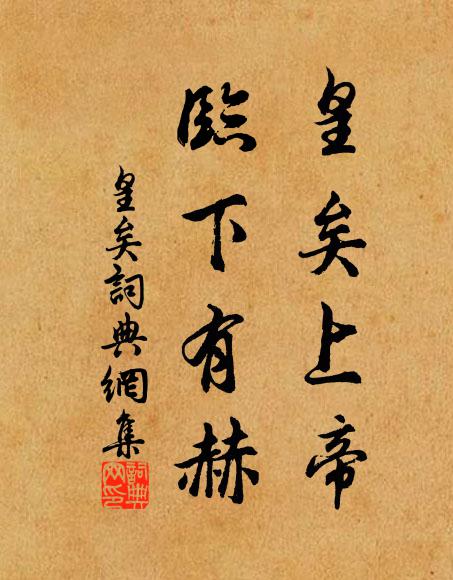 皇矣上帝
臨下有赫
皇矣詞典網集
詞典網印